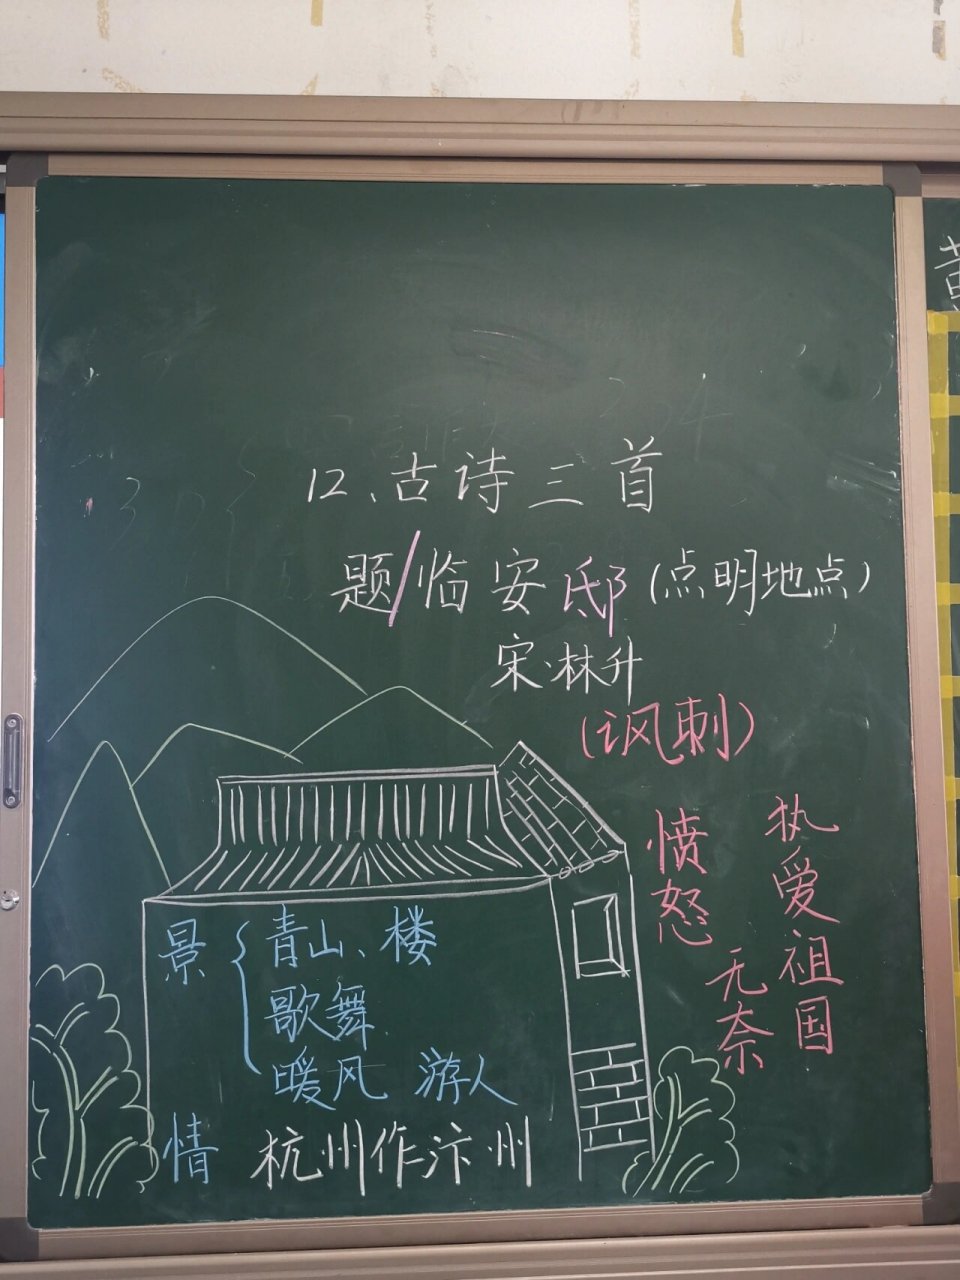 12、古诗三首
题/临安邸(点明地点)
宋·林升
(讽刺)
愤怒
无奈
执爱祖国
景{青山、楼
歌舞
暖风 游人
情 杭州作汴州
黄